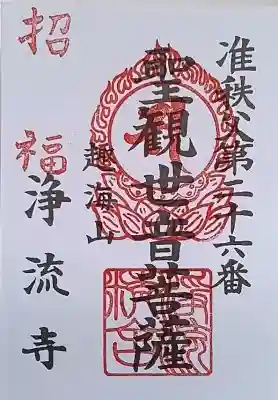 准秩父第二十六番
聖觀世音菩薩
趣海山
招福
浄流寺